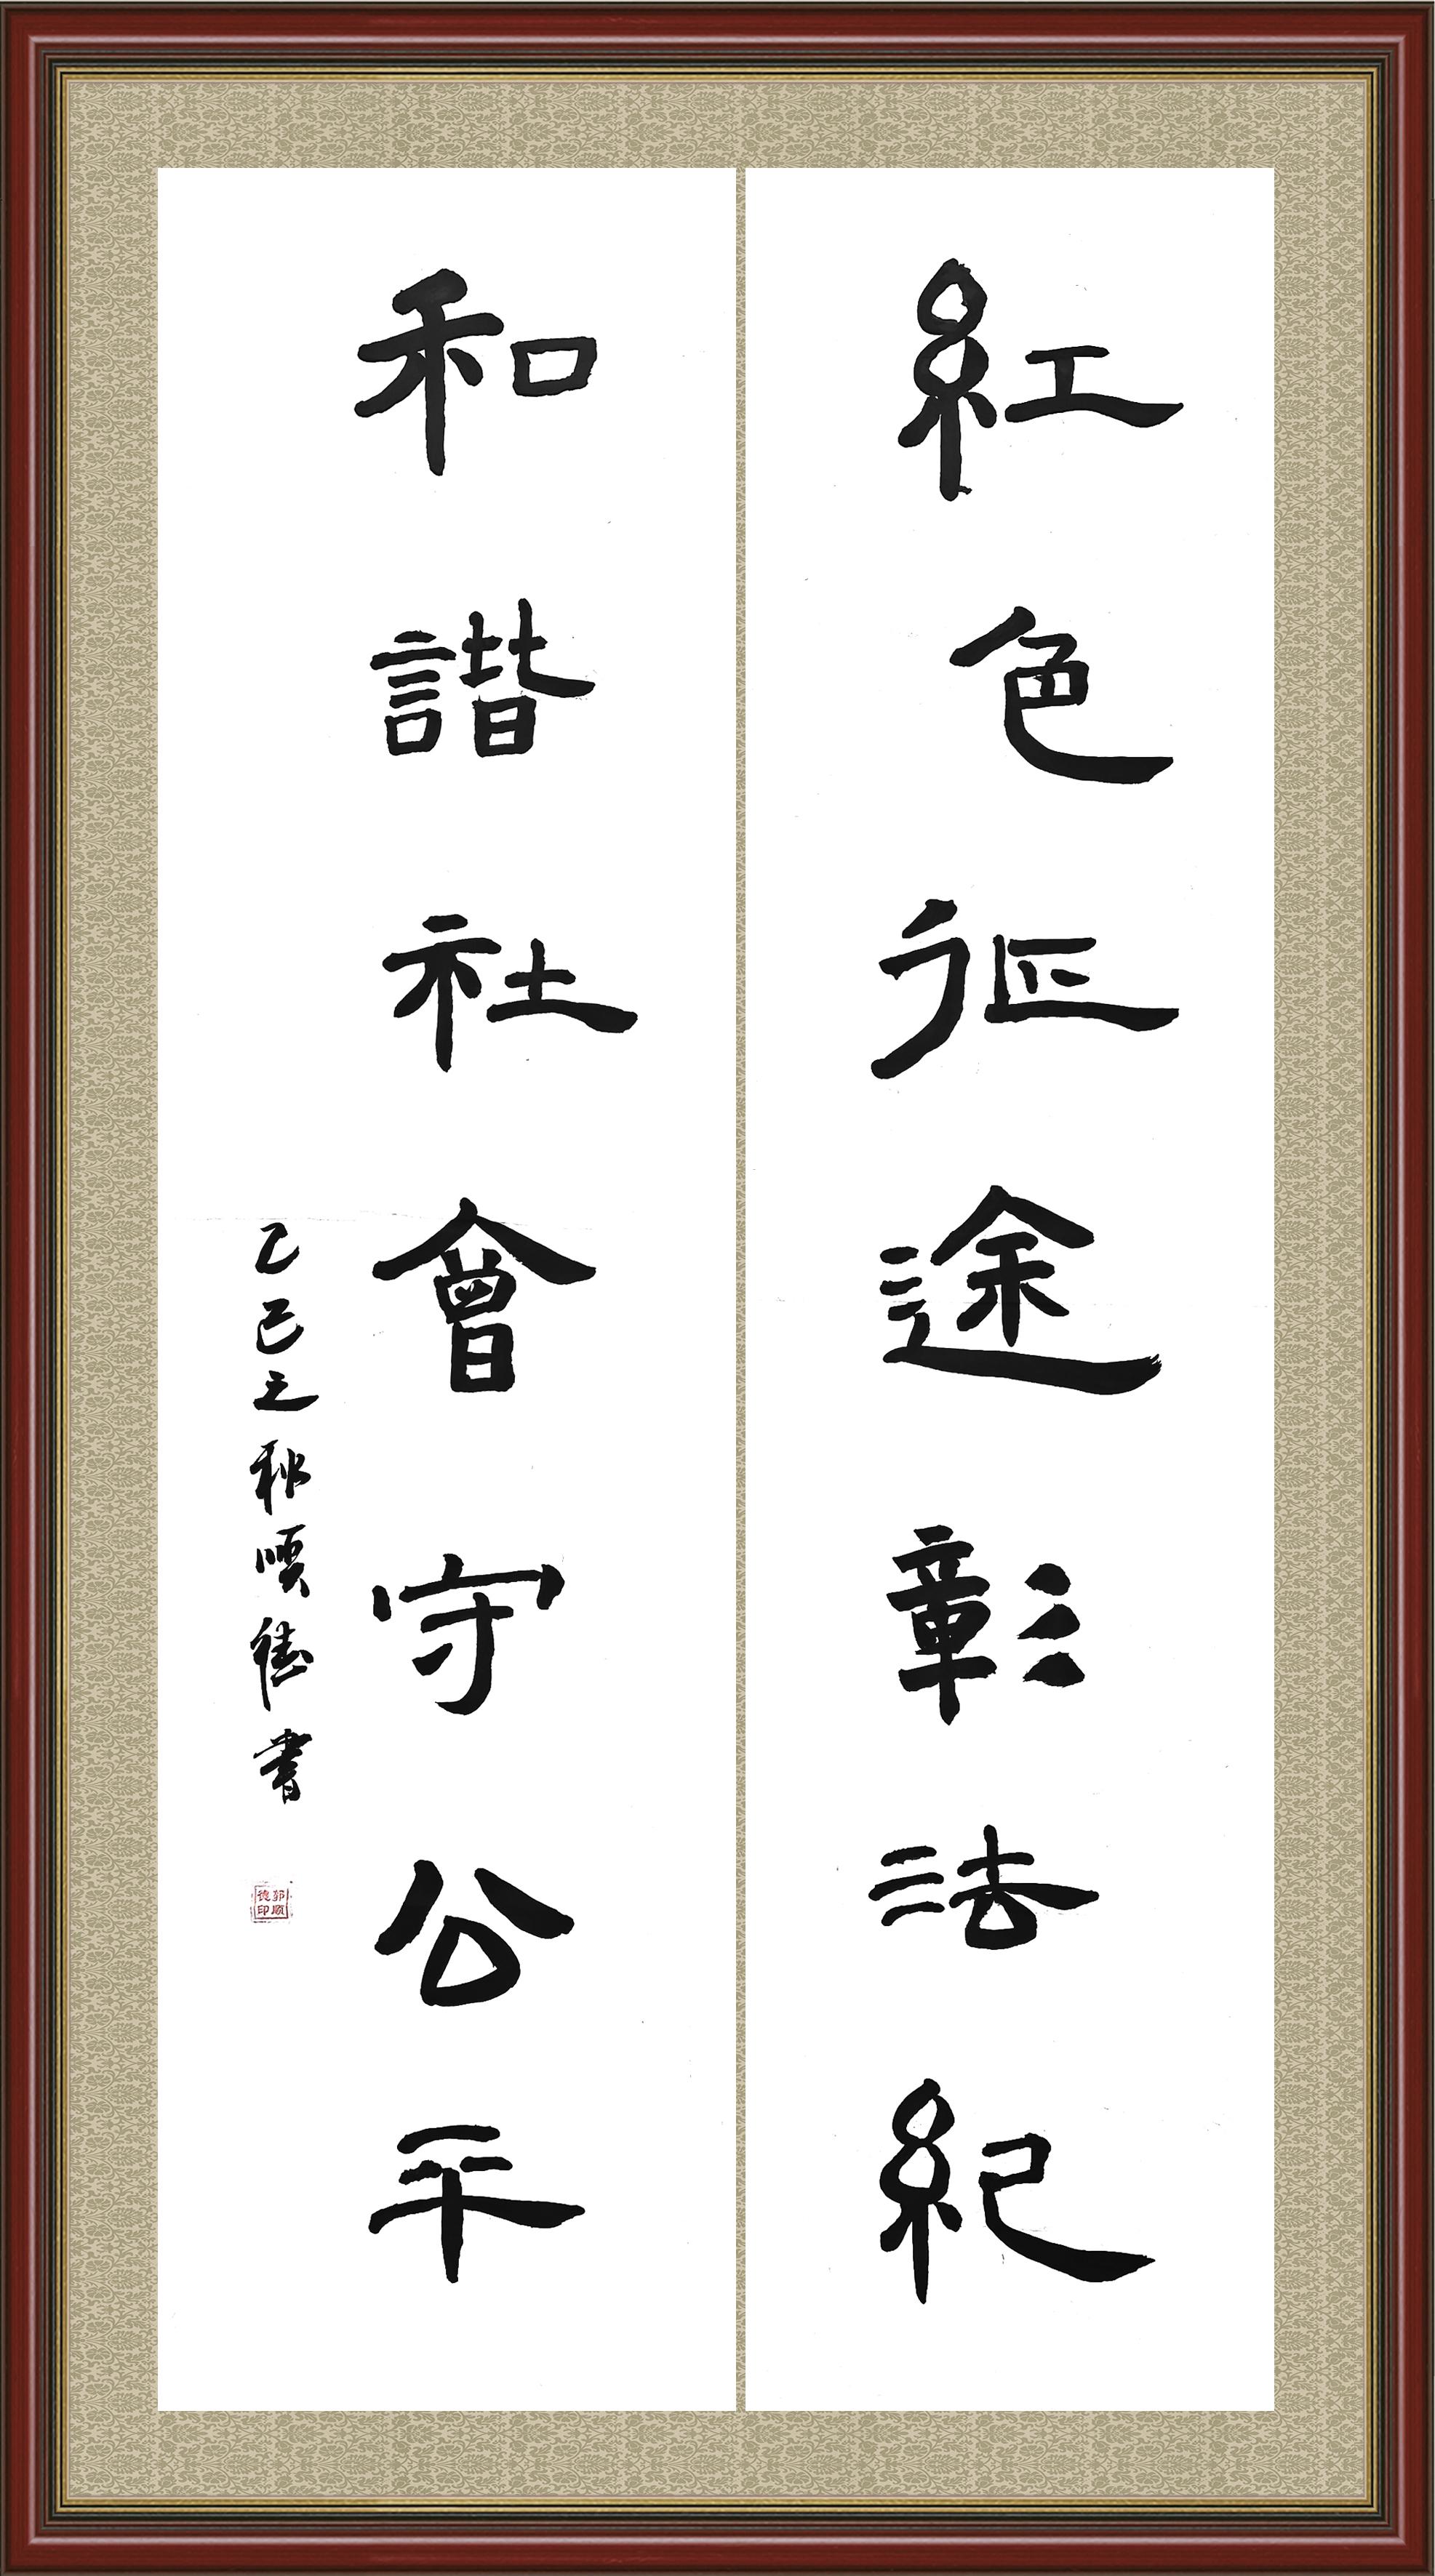 紅色征途彰法紀
和諧社會守公平
乙巳之秋順德書
郭順德印